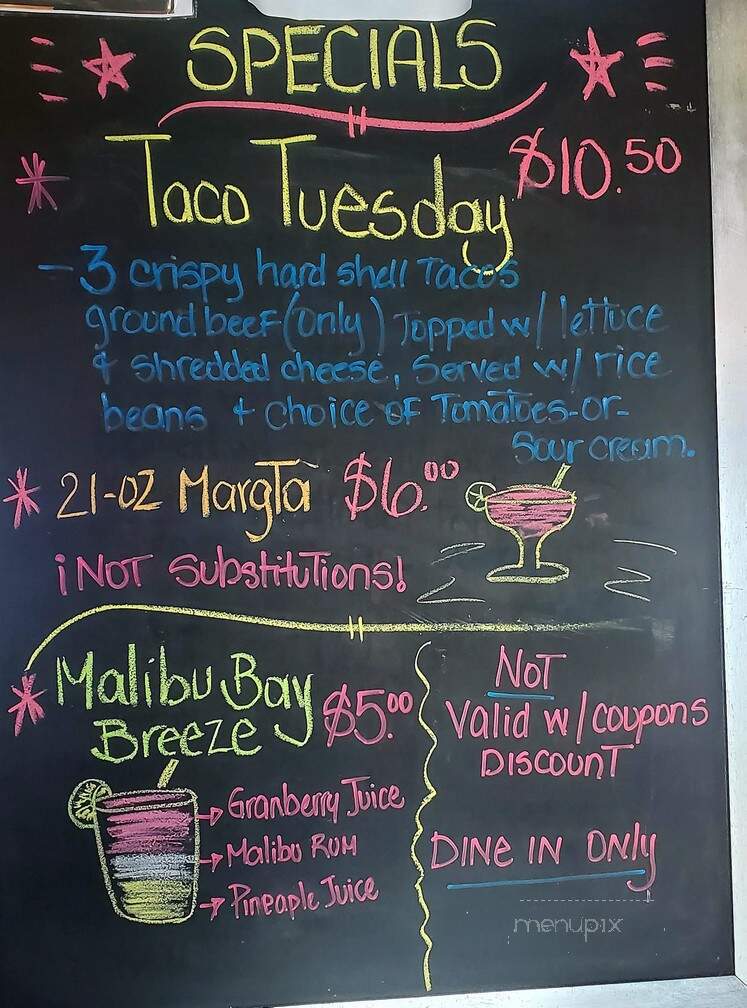 SPECIALS
Taco Tuesday $10.50
- 3 crispy hard shell Tacos
ground beef (only) Topped w/ lettuce
& shredded cheese, Served w/ rice
beans + choice of Tomatoes-or-
Sour cream.
21-OZ MargTa $6.00
¡NOT Substitutions!
Malibu Bay
Breeze $5.00
Granberry Juice
Malibu Rum
Pineapple Juice
NOT
Valid w/coupons
DISCOUNT
DINE IN ONLY
menupix